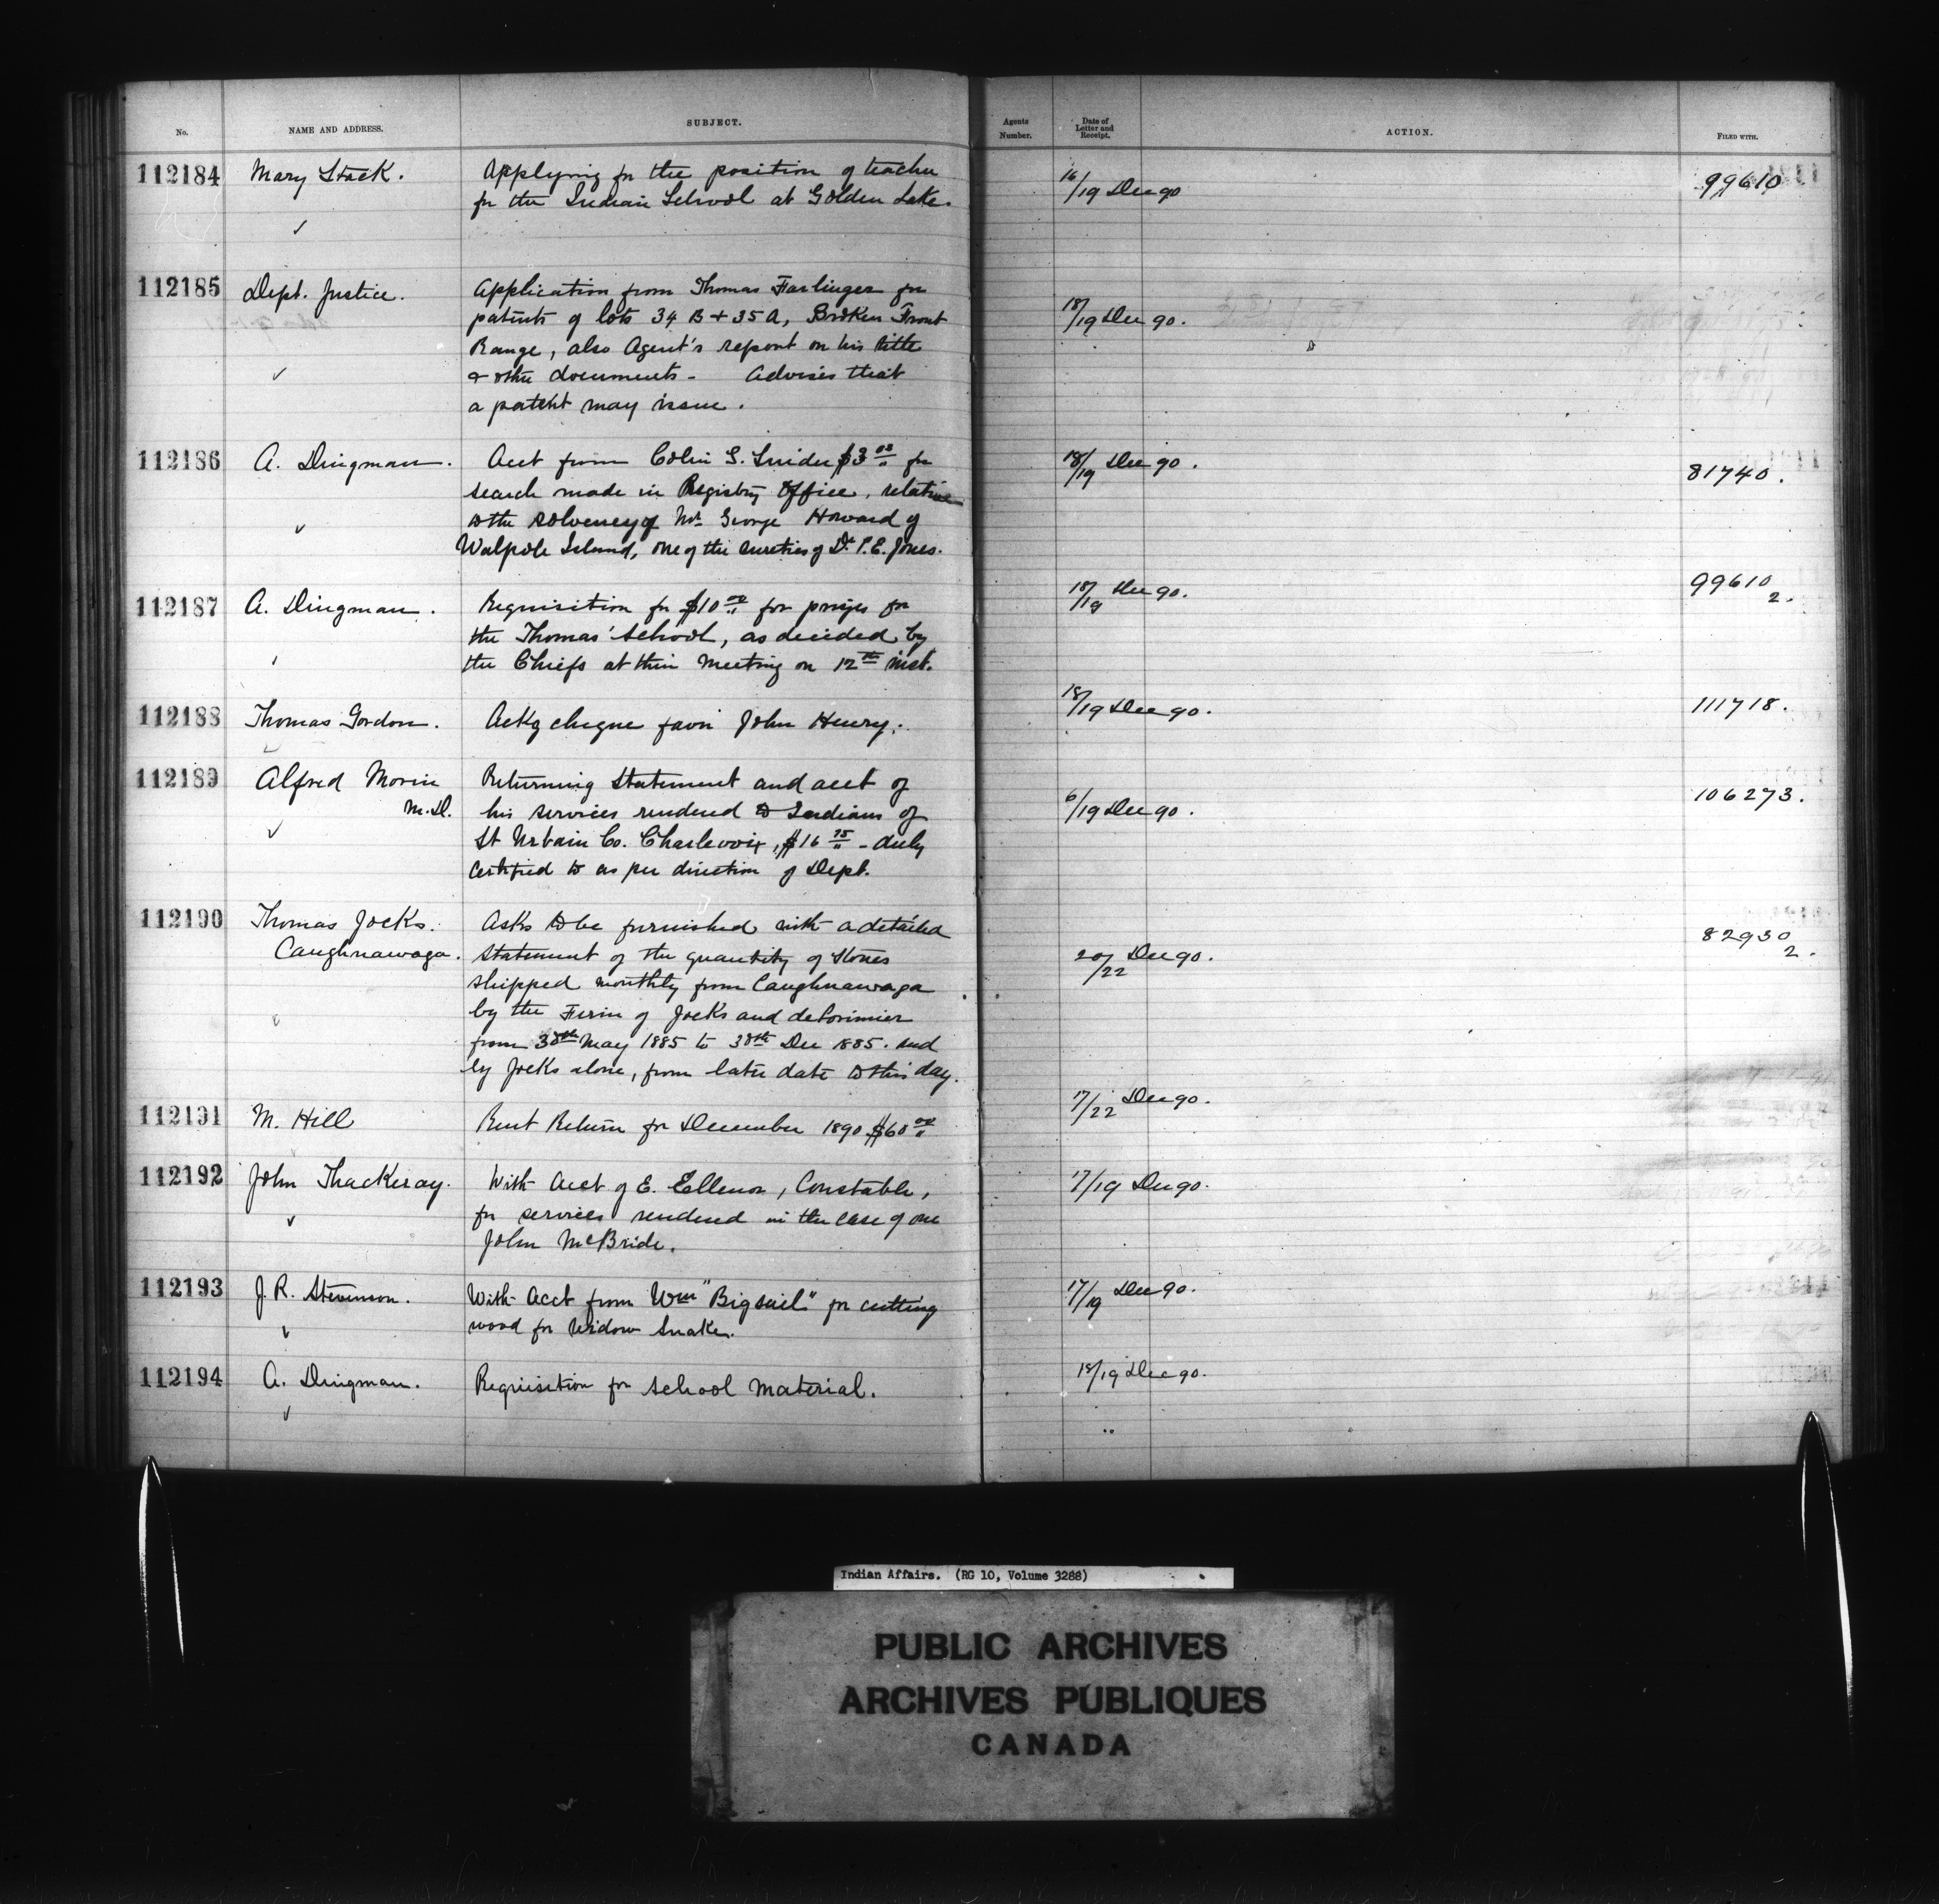 No.
NAME AND ADDRESS.
SUBJECT.
Agents Number.
Date of Letter and Receipt.
ACTION.
FILED WITH.
112184 Mary Stack. Applying for the position of teacher 16/19 Dec 90 99610
for the Indian School at Golden Lake.
112185 Dept. Justice. Application from Thomas Farlinger for
patents of lots 34 B + 35 A, Broken Front 18/19 Dec 90.
Range, also Agent's report on his title
& other documents - Advises that
a patent may issue.
112186 A. Dingman. Acct from Colin G. Snider $3 00 for 18/19 Dec 90. 81740.
search made in Registry Office, relative
to the solvency of Mr. George Howard of
Walpole Island, one of the sureties of Dr. P. E. Jones.
112187 A. Dingman. Requisition for $10 00 for prizes for 18/19 Dec 90. 99610 2.
the Thomas' School, as decided by
the Chiefs at their meeting on 12th inst.
112188 Thomas Gordon. Ackg cheque favor John Henry. 18/19 Dec 90. 111718.
112189 Alfred Morin Returning Statement and acct of
M.D. his services rendered to Indians of 6/19 Dec 90. 106273.
St Urbain Co. Charlevoix, $16 75 - duly
certified to as per direction of Dept.
112190 Thomas Jocks. Asks to be furnished with a detailed 82930 2.
Caughnawaga. Statement of the quantity of Stones 20/22 Dec 90.
shipped monthly from Caughnawaga
by the Firm of Jocks and deLorimier
from 30th May 1885 to 30th Dec 1885. and
by Jocks alone, from later date to this day.
112191 M. Hill Rent Return for December 1890 $60 00 17/22 Dec 90.
112192 John Thackeray. With Acct of E. Ellenor, Constable, 17/19 Dec 90.
for services rendered in the case of one
John McBride.
112193 J. R. Stevenson. With Acct from Wm "Bigsail" for cutting 17/19 Dec 90.
wood for Widow Snake.
112194 A. Dingman. Requisition for school material. 18/19 Dec 90.
Indian Affairs. (RG 10, Volume 3288)
PUBLIC ARCHIVES
ARCHIVES PUBLIQUES
CANADA